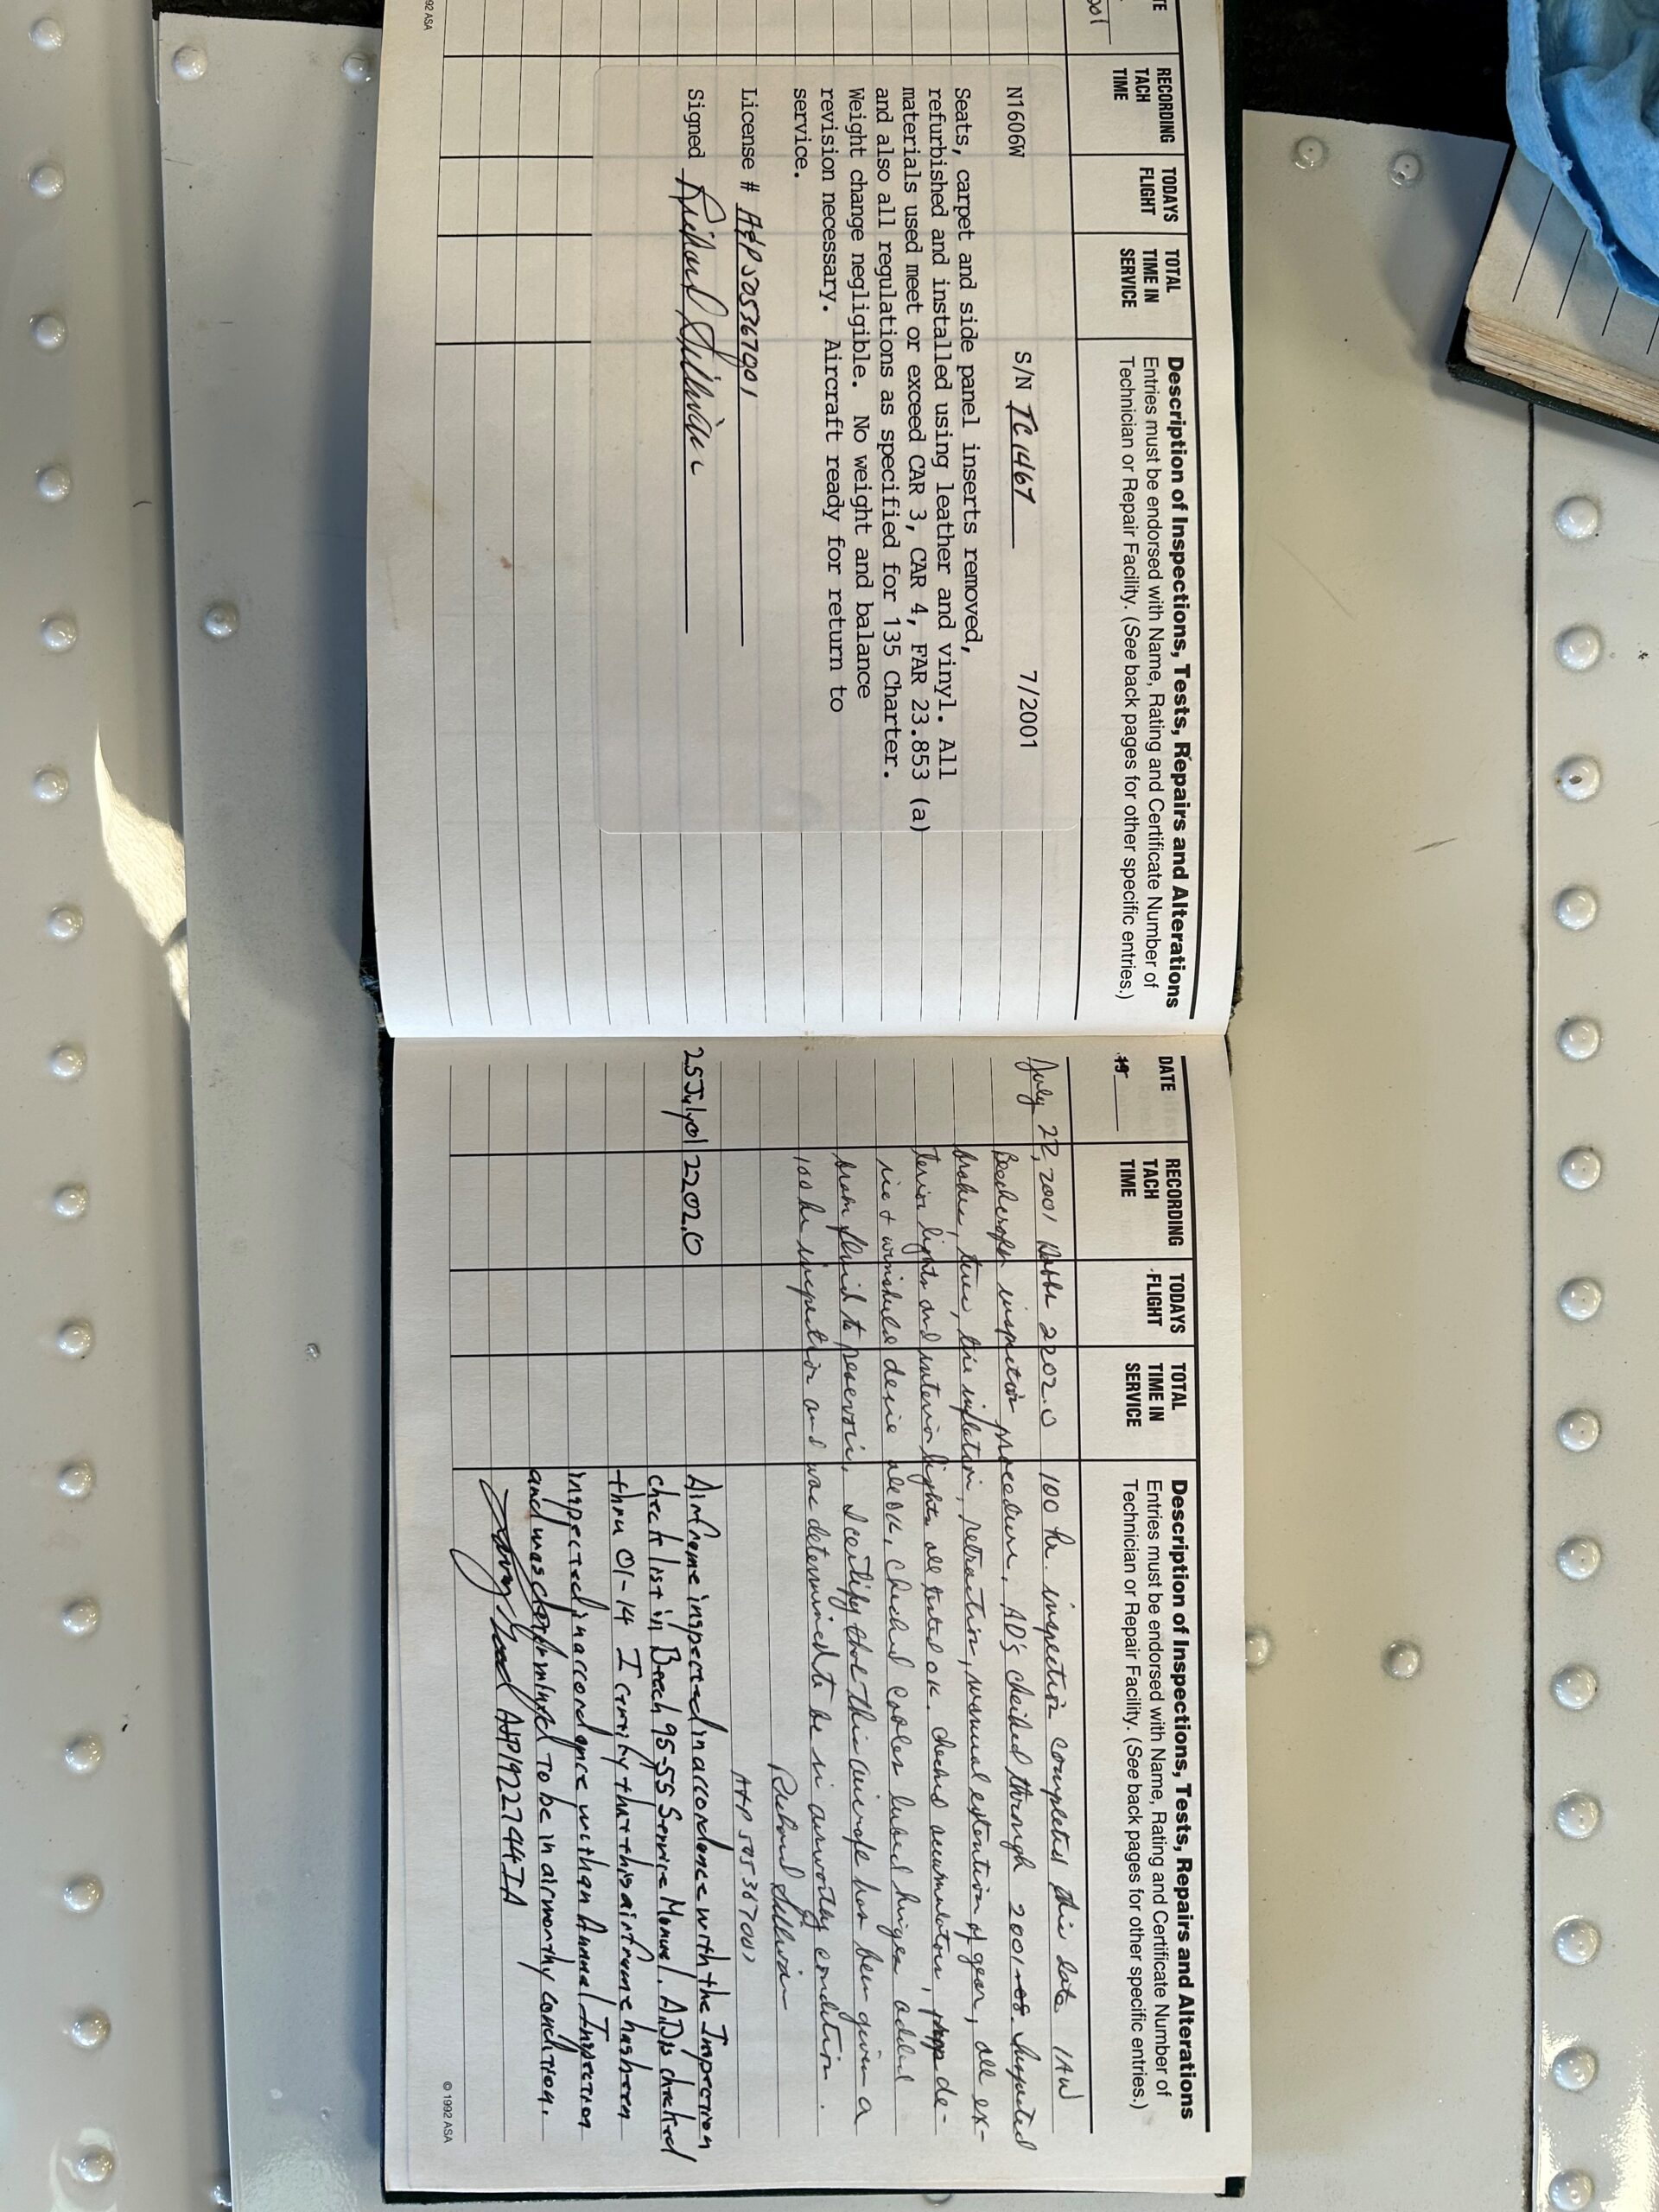 TE
RECORDING TACH TIME
TODAYS FLIGHT
TOTAL TIME IN SERVICE
Description of Inspections, Tests, Repairs and Alterations
Entries must be endorsed with Name, Rating and Certificate Number of
Technician or Repair Facility. (See back pages for other specific entries.)
001
N1606W S/N TC1467 7/2001
Seats, carpet and side panel inserts removed,
refurbished and installed using leather and vinyl. All
materials used meet or exceed CAR 3, CAR 4, FAR 23.853 (a)
and also all regulations as specified for 135 Charter.
Weight change negligible. No weight and balance
revision necessary. Aircraft ready for return to
service.
License # A&P 505367001
Signed Richard Sullivan
92 ASA
DATE
19
RECORDING TACH TIME
TODAYS FLIGHT
TOTAL TIME IN SERVICE
Description of Inspections, Tests, Repairs and Alterations
Entries must be endorsed with Name, Rating and Certificate Number of
Technician or Repair Facility. (See back pages for other specific entries.)
July 22, 2001 Hobbs 2202.0 100 hr. inspection completed this date IAW
Beechcraft inspection procedure. AD's checked through 2001-08. Inspected
brakes, tires, tire inflation, retraction, manual extention of gear, all ex-
terior lights and interior lights all tested ok. Checked accumulators, prop de-
ice & winshield deice all OK. Checked cables lubed hinges added
brake fluid to reservoir. I certify that this aircraft has been given a
100 hr inspection and was determined to be in airworthy condition.
Richard Sullivan
A&P 505367001
25 July 01 2202.0 Airframe inspected in accordance with the Inspection
check list in Beech 95-55 Service Manual. A.D.s checked
thru 01-14 I certify that this airframe has been
inspected in accordance with an Annual Inspection
and was determined to be in airworthy condition.
AP1922744IA
© 1992 ASA